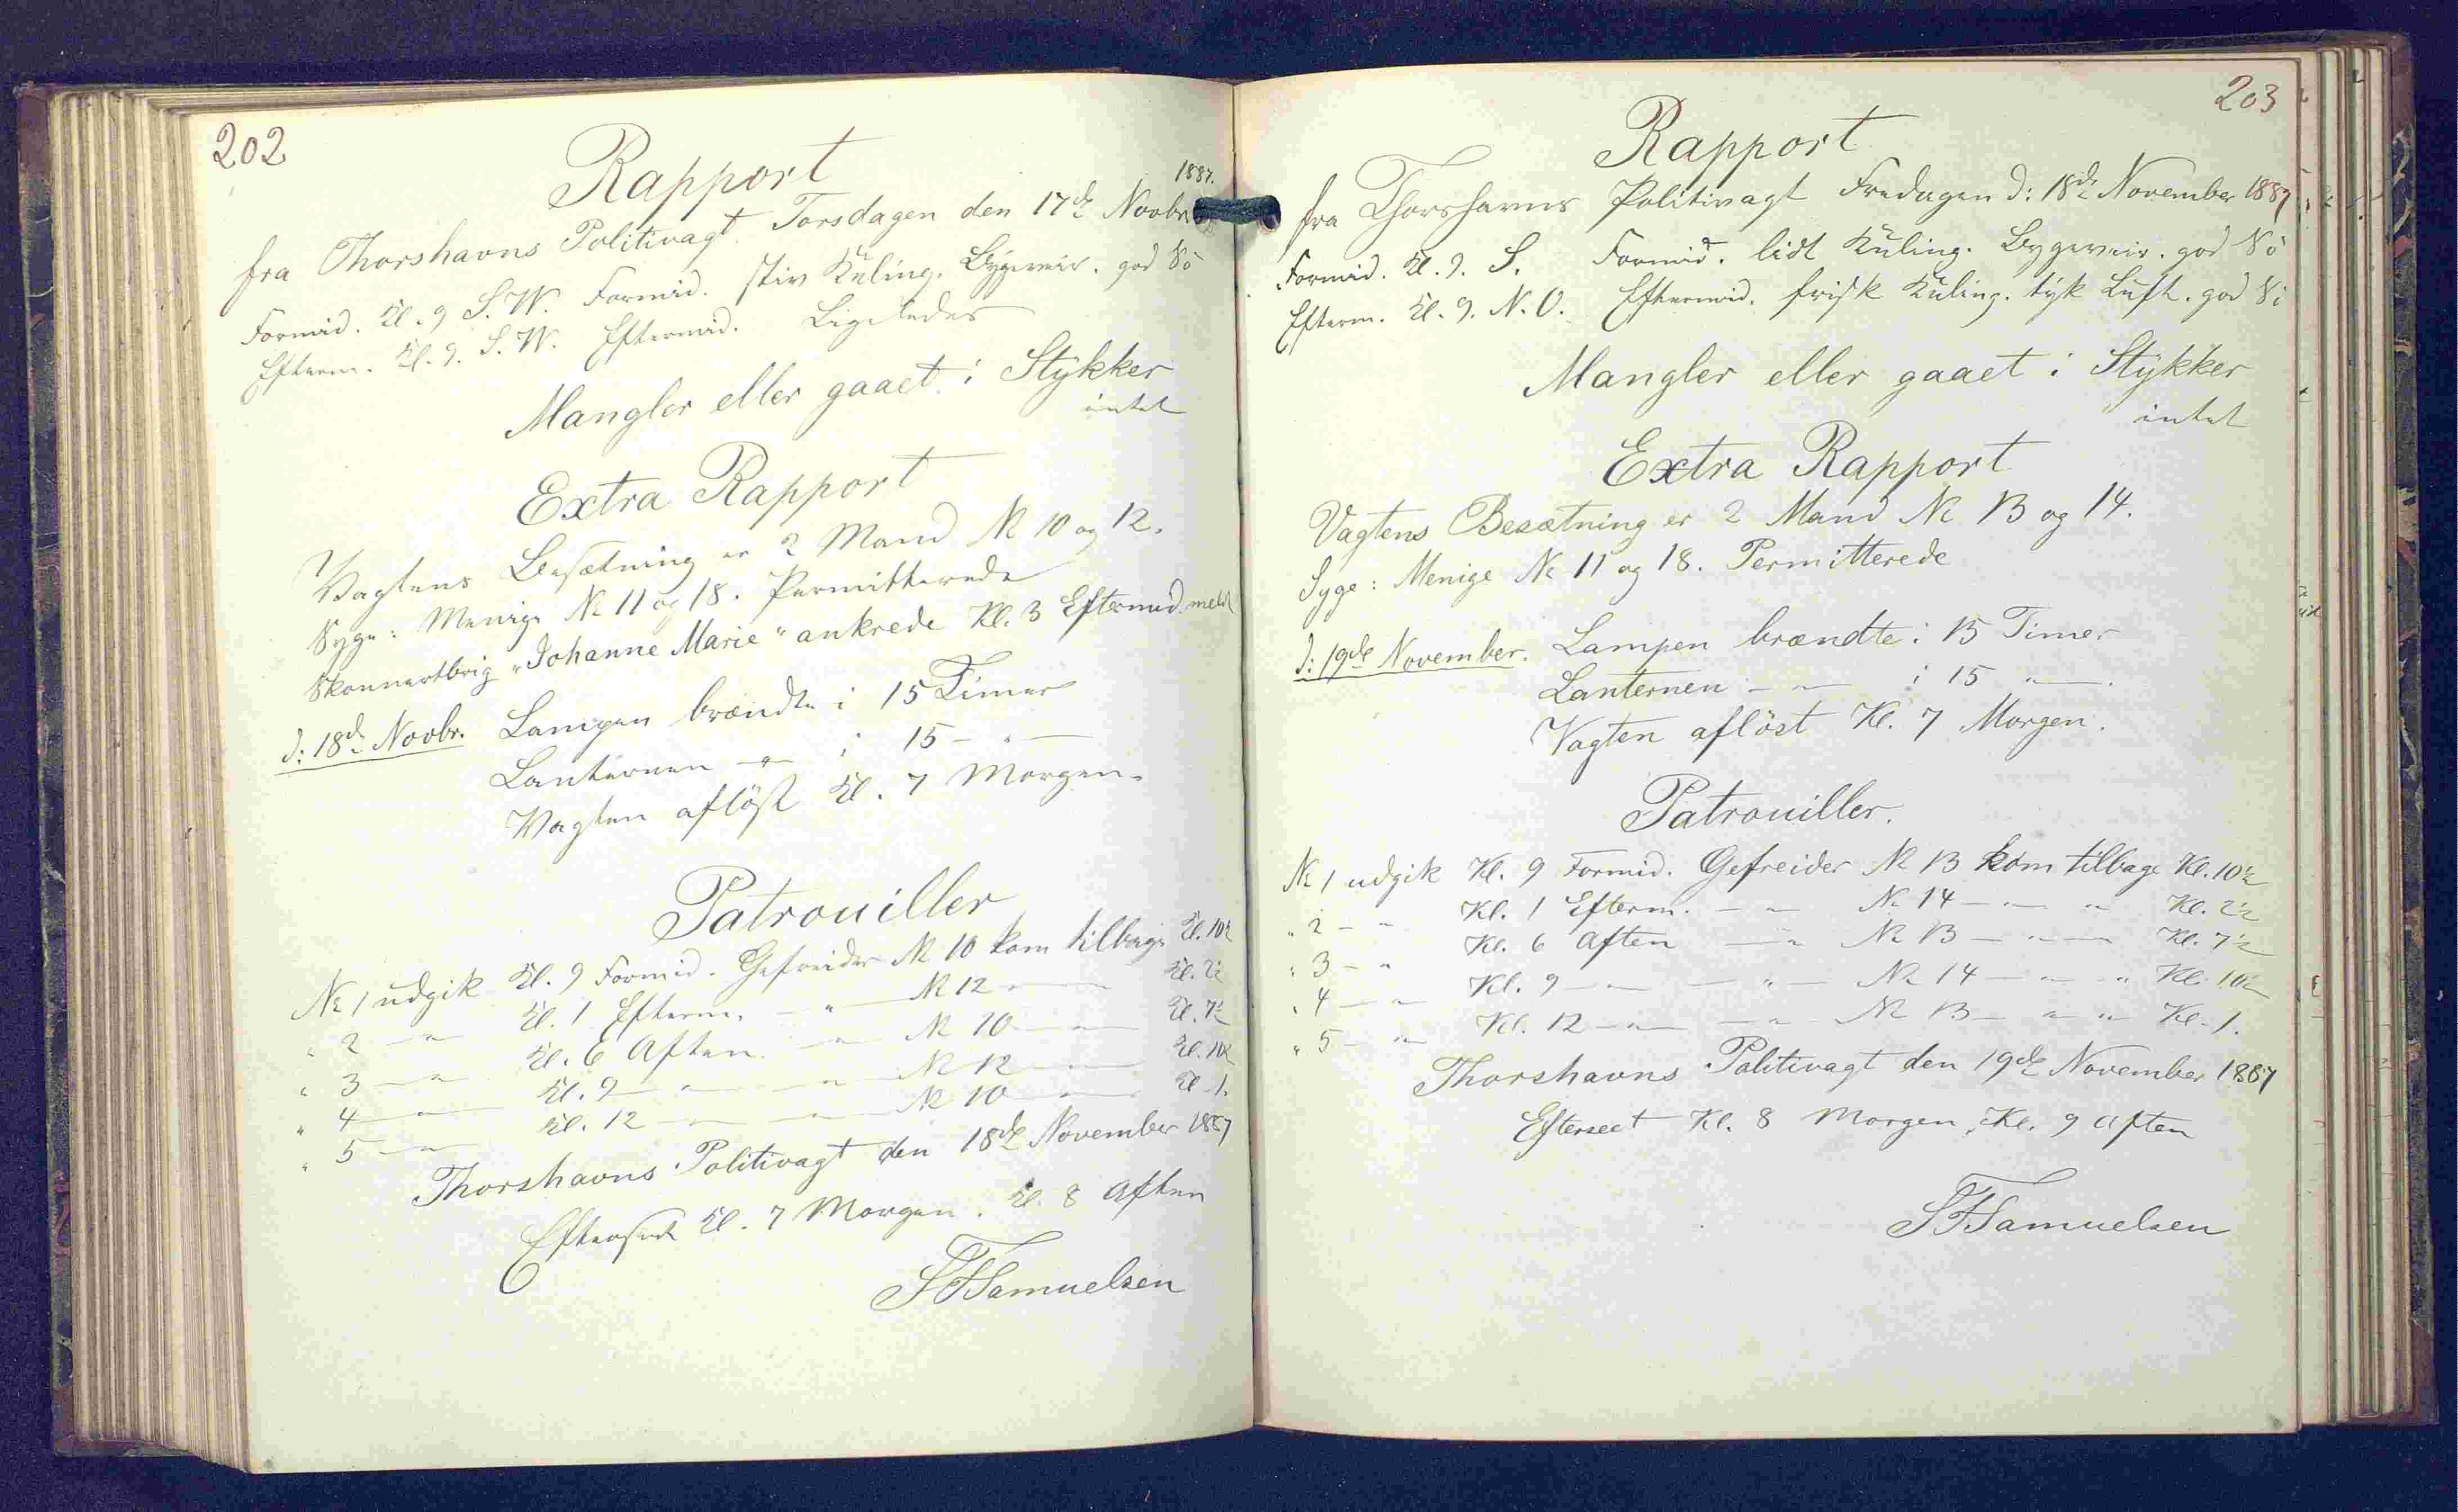 202
Rapport
1887.
fra Thorshavns Politivagt. Torsdagen den 17de Novbr.
Formid. Kl. 9 S.W. Formid. stiv Kuling. Bygeveir. god Sö
Efterm. Kl. 9. S.W. Eftermid. Ligeledes
Mangler eller gaaet i Stykker
intet
Extra Rapport
Vagtens Besætning er 2 Mand No 10 og 12.
Syge: Menige No 11 og 18. Permitterede
Skonnertbrig "Johanne Marie" ankrede Kl. 3 Eftermid. meldt
d: 18de Novbr. Lampen brændte i 15 Timer
Lanternen - " - i 15 - " -
Vagten aflöst Kl. 7 Morgen.
Patrouiller
No 1 udgik Kl. 9 Formid. Gefreider No 10 kom tilbage Kl. 10½
" 2 - " Kl. 1 Efterm. - " - No 12 - " - Kl. 2½
" 3 - " Kl. 6 Aften - " - No 10 - " - Kl. 7½
" 4 - " Kl. 9 - " - " - No 12 - " - Kl. 10½
" 5 - " Kl. 12 - " - " - No 10 - " - Kl. 1.
Thorshavns Politivagt den 18de November 1887
Efterseet Kl. 7 Morgen. Kl. 8 Aften
SFSamuelsen
203
Rapport
fra Thorshavns Politivagt Fredagen d: 18de November 1887
Formid. Kl. 9. S. Formid. lidt Kuling. Bygeveir. god Sö
Efterm. Kl. 9. N.O. Eftermid. frisk Kuling. tyk Luft. god Sö
Mangler eller gaaet i Stykker
intet
Extra Rapport
Vagtens Besætning er 2 Mand No 13 og 14.
Syge: Menige No 11 og 18. Permitterede
d: 19de November. Lampen brændte i 15 Timer
Lanternen - " - i 15 " - .
Vagten aflöst Kl. 7 Morgen.
Patrouiller.
No 1 udgik Kl. 9 Formid. Gefreider No 13 kom tilbage Kl. 10½
" 2 - " Kl. 1 Efterm. - " No 14 - " - " Kl. 2½
" 3 - " Kl. 6 Aften - " No 13 - " - Kl. 7½
" 4 - " Kl. 9 - " - " - No 14 - " - " Kl. 10½
" 5 - " Kl. 12 - " - " - No 13 - " - " Kl. 1.
Thorshavns Politivagt den 19de November 1887
Efterseet Kl. 8 Morgen, Kl. 9 Aften
SFSamuelsen